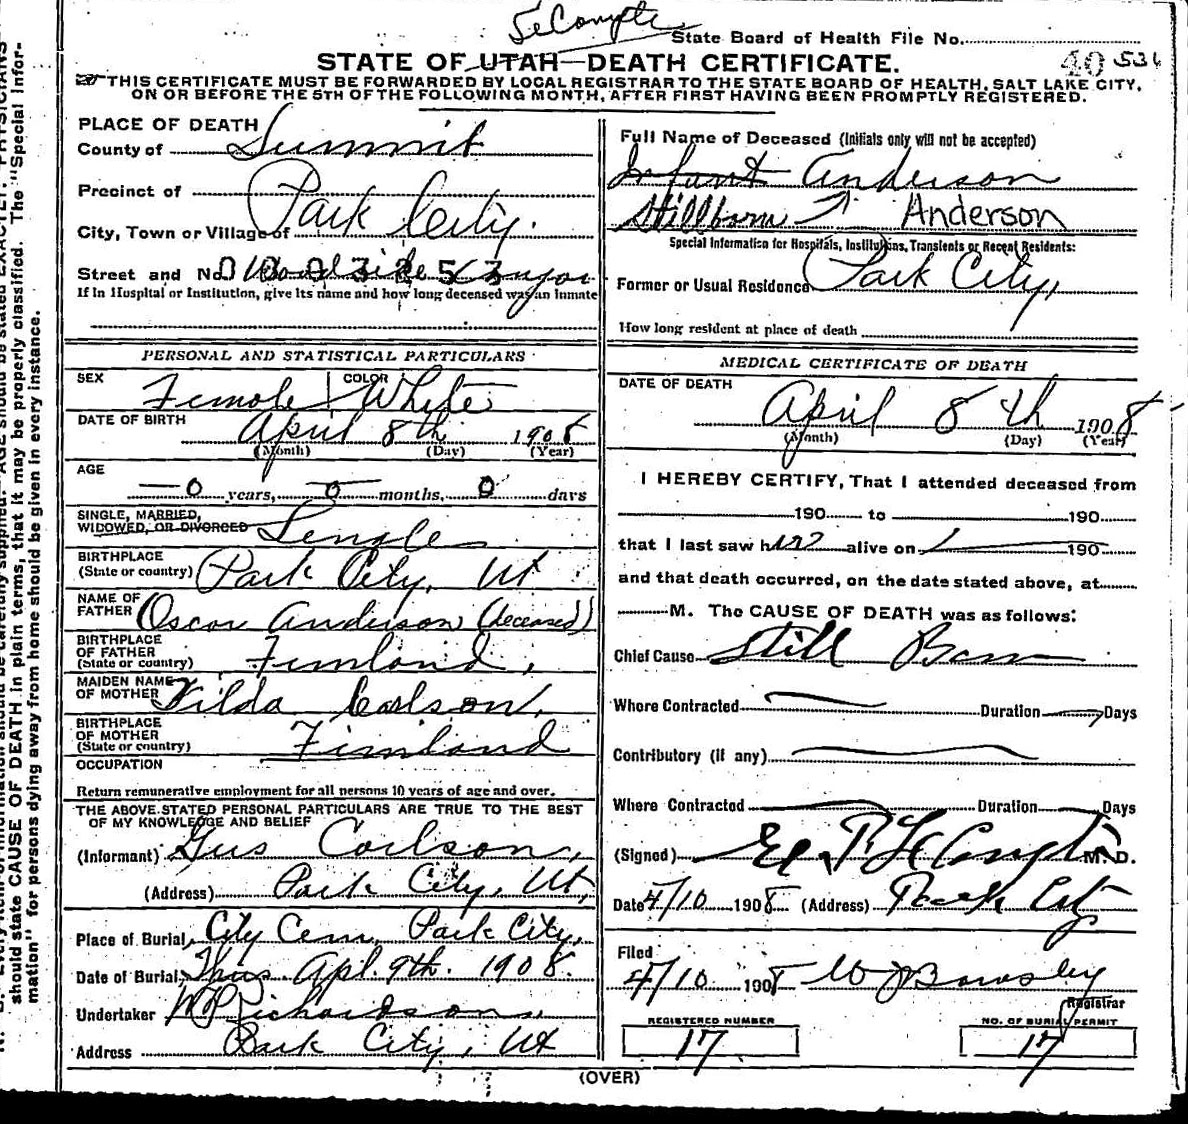 LeCompte
State Board of Health File No.
40 536
STATE OF UTAH—DEATH CERTIFICATE.
THIS CERTIFICATE MUST BE FORWARDED BY LOCAL REGISTRAR TO THE STATE BOARD OF HEALTH, SALT LAKE CITY,
ON OR BEFORE THE 5TH OF THE FOLLOWING MONTH, AFTER FIRST HAVING BEEN PROMPTLY REGISTERED.
PLACE OF DEATH
County of Summit
Precinct of
Park City.
City, Town or Village of
Street and No. Woodside Canyon
0 8 0 3 2 5 3
If in Hospital or Institution, give its name and how long deceased was an inmate
PERSONAL AND STATISTICAL PARTICULARS
SEX Female COLOR White
DATE OF BIRTH April 8th 1908
(Month) (Day) (Year)
AGE
0 years, 0 months, 0 days
SINGLE, MARRIED,
WIDOWED, OR DIVORCED Single
BIRTHPLACE
(State or country) Park City, Ut
NAME OF
FATHER Oscar Anderson (deceased)
BIRTHPLACE
OF FATHER
(State or country) Finnland,
MAIDEN NAME
OF MOTHER Hilda Carlson,
BIRTHPLACE
OF MOTHER
(State or country) Finnland
OCCUPATION
Return remunerative employment for all persons 10 years of age and over.
THE ABOVE STATED PERSONAL PARTICULARS ARE TRUE TO THE BEST
OF MY KNOWLEDGE AND BELIEF
(Informant) Gus Carlson,
(Address) Park City, Ut,
Place of Burial, City Cem, Park City,
Date of Burial, Thurs Apl. 9th. 1908.
Undertaker Richardson,
Address Park City, Ut
Full Name of Deceased (Initials only will not be accepted)
Infant Anderson
Stillborn ↑ Anderson
Special Information for Hospitals, Institutions, Transients or Recent Residents:
Former or Usual Residence Park City,
How long resident at place of death
MEDICAL CERTIFICATE OF DEATH
DATE OF DEATH
April 8th 1908
(Month) (Day) (Year)
I HEREBY CERTIFY, That I attended deceased from
190 to 190
that I last saw her alive on 190
and that death occurred, on the date stated above, at
M. The CAUSE OF DEATH was as follows:
Chief Cause Still Born
Where Contracted Duration Days
Contributory (if any)
Where Contracted Duration Days
(Signed) E. P. LeCompte M. D.
Date 4/10 1908 (Address) Park City
Filed
4/10 1908
Registrar
REGISTERED NUMBER
17
NO. OF BURIAL PERMIT
17
(OVER)
should state CAUSE OF DEATH in plain terms, that it may be properly classified. The "Special Infor-
mation" for persons dying away from home should be given in every instance.